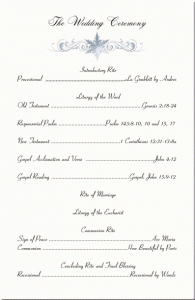 The Wedding Ceremony
Introductory Rite
Processional ............ La Goblett by Andre
Liturgy of the Word
Old Testament ............ Genesis 2:18-24
Responsorial Psalm ............ Psalm 145:8-10, 10 and 15, 17
New Testament ............ 1 Corinthians 12:31-13:8a
Gospel Acclamation and Verse ............ John 4:12
Gospel Reading ............ Gospel, John 15:9-12
Rite of Marriage
Liturgy of the Eucharist
Communion Rite
Sign of Peace ............ Ave Maria
Communion ............ How Beautiful by Paris
Concluding Rite and Final Blessing
Recessional ............ Recessional by Wards